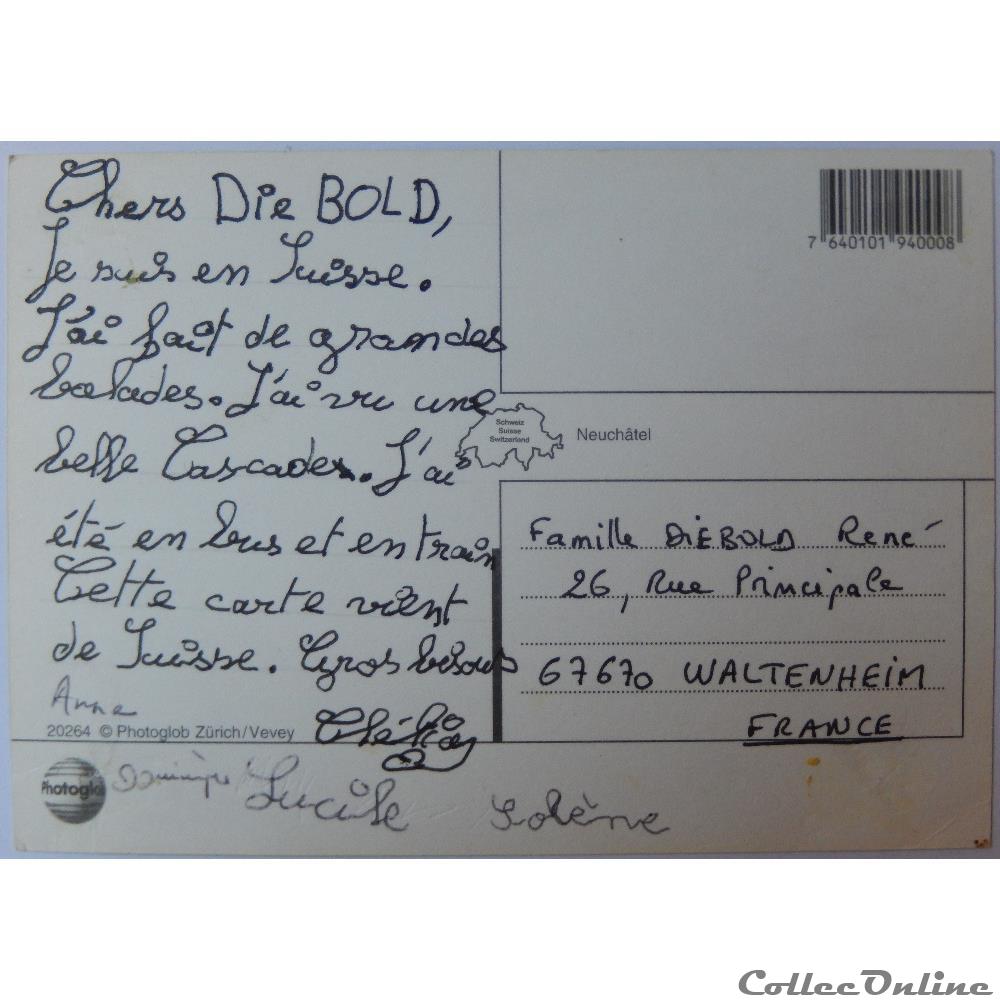 Chers DieBOLD,
Je suis en Suisse.
J'ai fait de grandes
balades. J'ai vu une
belle Cascade. J'ai
été en bus et en train
Cette carte vient
de Suisse. Gros bisous
Anne
20264 © Photoglob Zürich/Vevey
Photoglob
Dominique
Lucile
Solène
7 640101 940008
Schweiz
Suisse
Switzerland
Neuchâtel
Famille DIEBOLD René
26, Rue Principale
67670 WALTENHEIM
FRANCE
CollecOnline